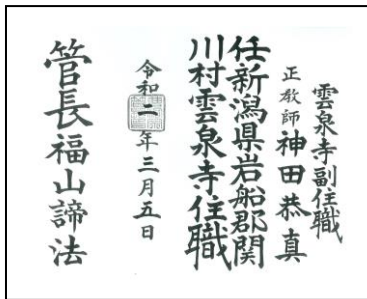 雲泉寺副住職
正教師 神田恭真
任新潟県岩船郡関
川村雲泉寺住職
令和二年三月五日
管長福山諦法